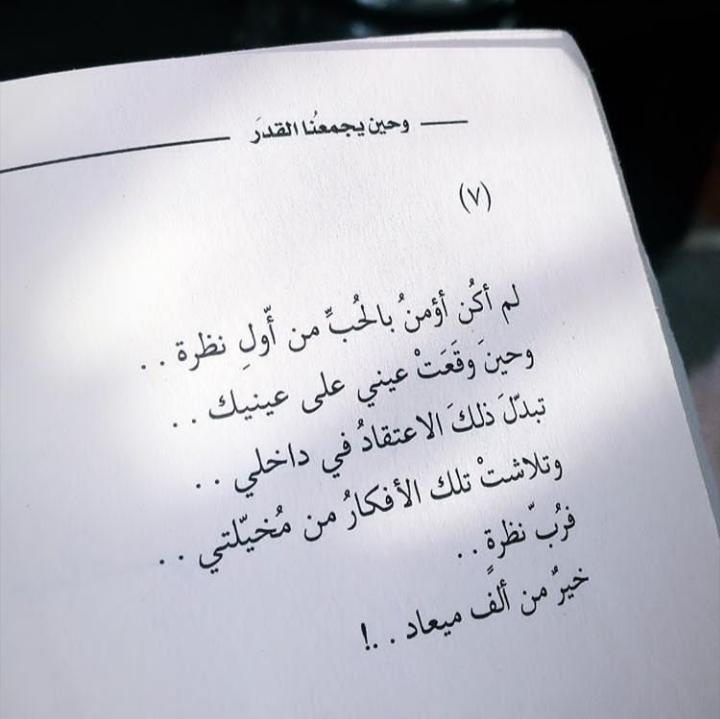 وحين يجمعُنا القدرَ
(٧)
لم أكُن أؤمنُ بالحُبِّ من أّولِ نظرة . .
وحينَ وقَعَتْ عيني على عينيك . .
تبدّلَ ذلكَ الاعتقادُ في داخلي . .
وتلاشتْ تلك الأفكارُ من مُخيّلتي . .
فرُبّ نظرةٍ . .
خيرٌ من ألف ميعاد . .!